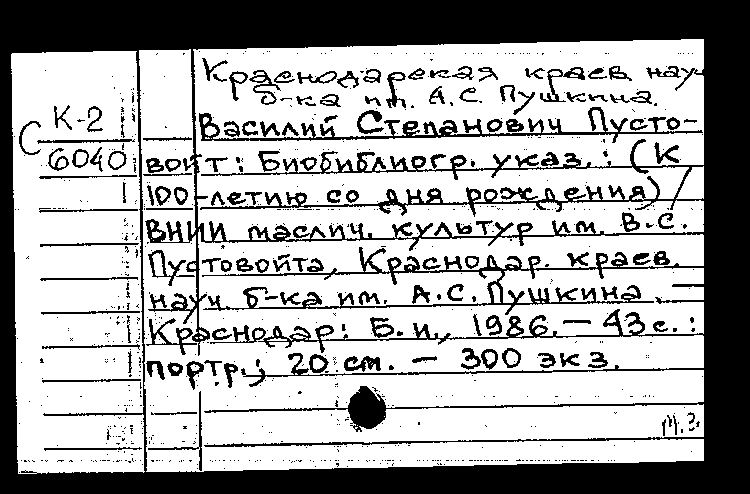 Краснодарская краев. науч.
б-ка им. А.С. Пушкина.
С К-2
6040
Василий Степанович Пусто-
войт: Биобиблиогр. указ.: (К
100-летию со дня рождения) /
ВНИИ маслич. культур им. В.С.
Пустовойта, Краснодар. краев.
науч. б-ка им. А.С. Пушкина. —
Краснодар: Б.и., 1986. — 43 с.:
портр.; 20 см. — 300 экз.